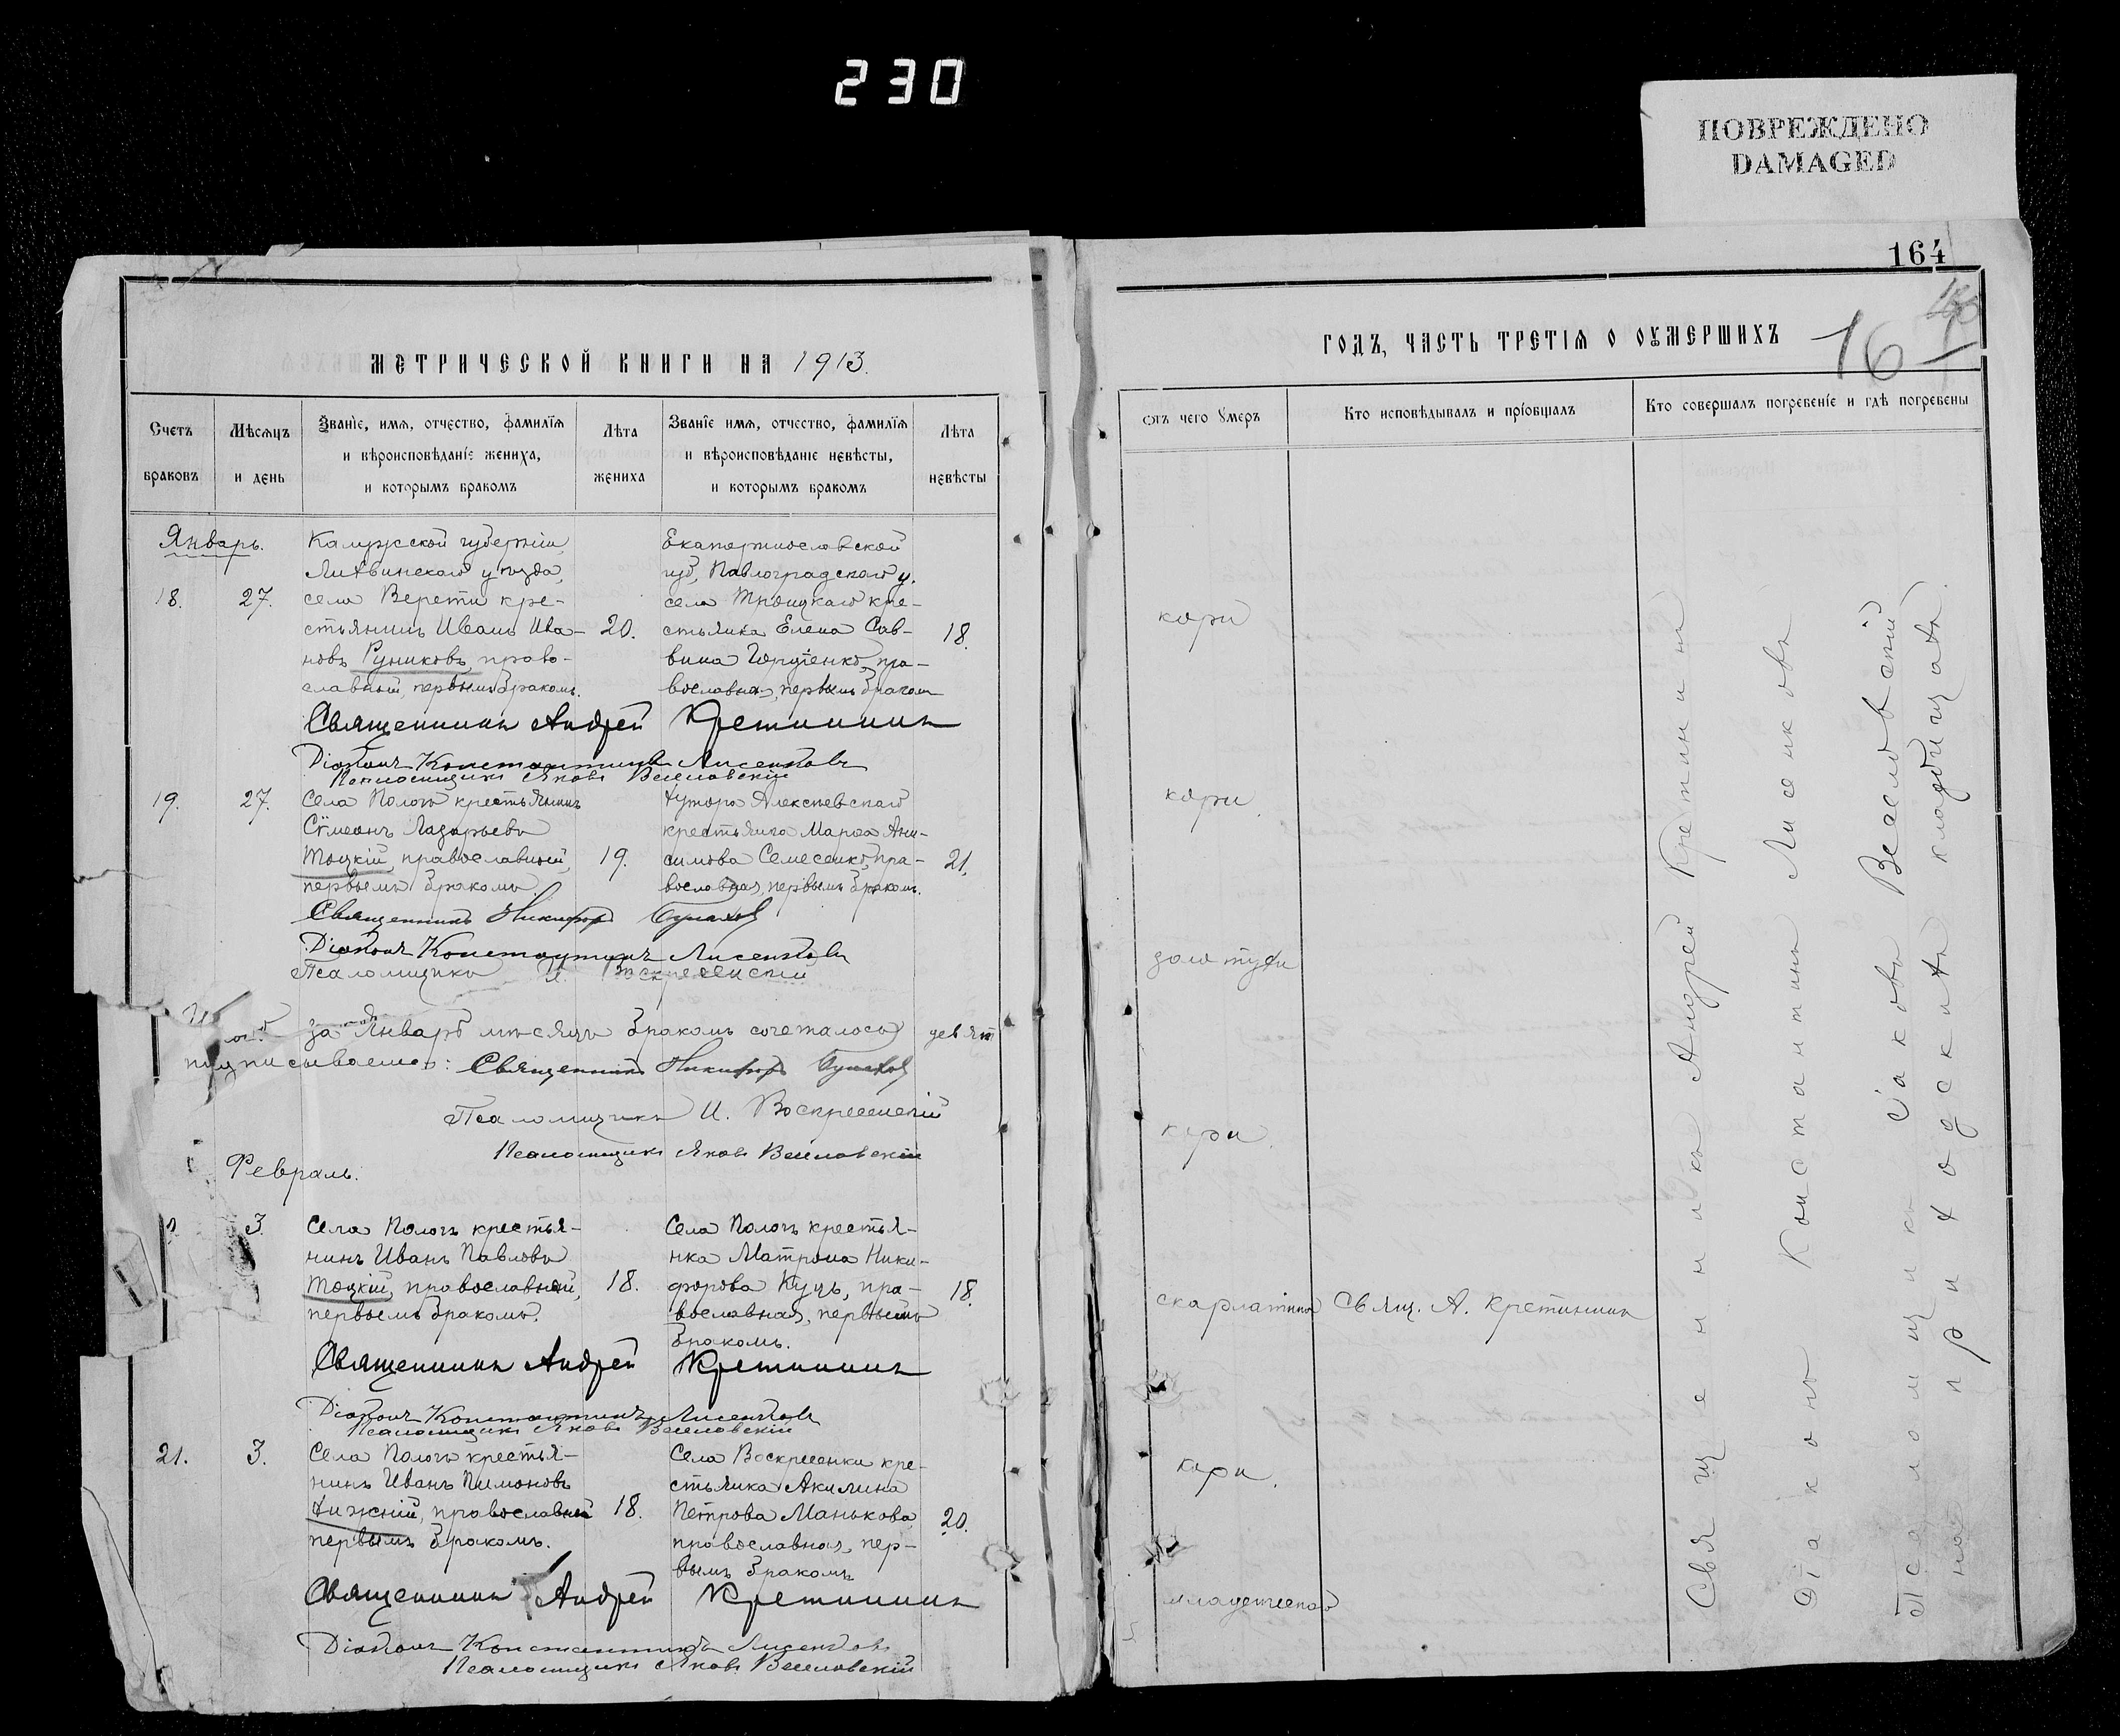 230
ПОВРЕЖДЕНО
DAMAGED
МЕТРИЧЕСКОЙ КНИГИ НА 1913.
Счетъ браковъ
Мѣсяцъ и день
Званіе, имя, отчество, фамилія и вѣроисповѣданіе жениха, и которымъ бракомъ
Лѣта жениха
Званіе имя, отчество, фамилія и вѣроисповѣданіе невѣсты, и которымъ бракомъ
Лѣта невѣсты
Январь.
18.
27.
Калужской губерніи,
Лихвинскаго уѣзда,
села Берети кре-
стьянинъ Иванъ Ива-
новъ Руниковъ, право-
славный, первымъ бракомъ.
20.
Екатеринославской
губ, Павлоградскаго у.
села Троицкаго кре-
стьянка Елена Сав-
вина пра-
вославная, первымъ бракомъ
18.
Священникъ Андрей Кретининъ
Діаконъ Константинъ Лисенковъ
Псаломщикъ Яковъ Веселовскій
19.
27.
Села Пологъ крестьянинъ
Сѵмеонъ Лазарьевъ
Тоцкій, православный,
первымъ бракомъ.
19.
Хутора Алексѣевскаго
крестьянка Марѳа Ани-
симова Семесенко, пра-
вославная, первымъ бракомъ.
21.
Священникъ Никифоръ
Діаконъ Константинъ Лисенковъ
Псаломщикъ И. Воскресенскій
за Январь мѣсяцъ бракомъ сочеталось девять
подписываемъ: Священникъ Никифоръ
Псаломщикъ И. Воскресенскій
Псаломщикъ Яковъ Веселовскій
Февраль.
3.
Села Пологъ крестья-
нинъ Иванъ Павловъ
Тоцкій, православный,
первымъ бракомъ.
18.
Села Пологъ крестья-
нка Матрона Ники-
форова Куцъ, пра-
вославная, первымъ
бракомъ.
18.
Священникъ Андрей Кретининъ
Діаконъ Константинъ Лисенковъ
Псаломщикъ Яковъ Веселовскій
21.
3.
Села Пологъ крестья-
нинъ Иванъ Пимоновъ
Хижній, православный
первымъ бракомъ.
18.
Села Воскресенки кре-
стьянка Акилина
Петрова Манькова,
православная, пер-
вымъ бракомъ
20.
Священникъ Андрей Кретининъ
Діаконъ Константинъ Лисенковъ
Псаломщикъ Яковъ Веселовскій
164
16
ГОДЪ, ЧАСТЬ ТРЕТІЯ О ОУМЕРШИХЪ
отъ чего умеръ
Кто исповѣдывалъ и пріобщалъ
Кто совершалъ погребеніе и гдѣ погребены
кори
кори.
золотухи
кори.
скарлатины
Свящ. А. Кретининъ
кори.
младенческой
Священникъ Андрей Кретининъ
Діаконъ Константинъ Лисенковъ
Псаломщикъ Іаковъ Веселовскій
на приходскихъ кладбищахъ.